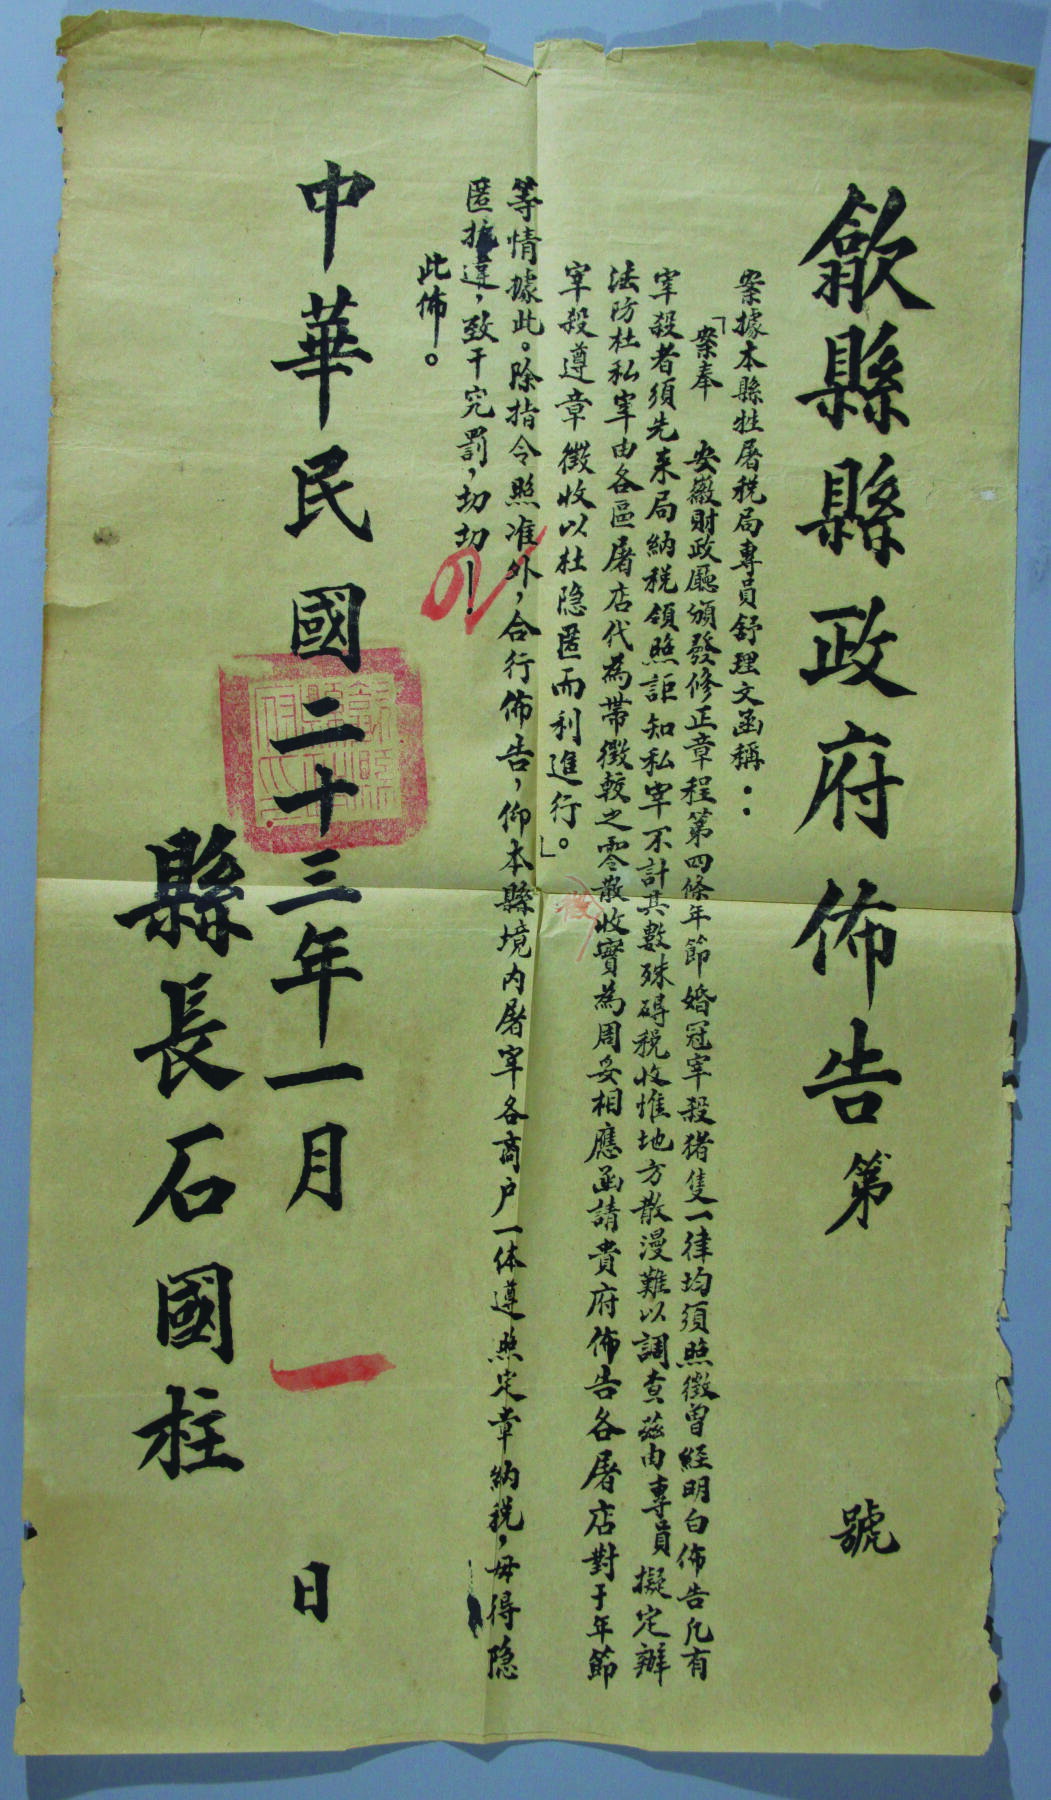 歙縣縣政府佈告第　號
案據本縣牲屠稅局專員舒理文函稱：
「案奉　安徽財政廳頒發修正章程第四條年節婚冠宰殺猪隻一律均須照徵曾經明白佈告凡有
宰殺者須先来局納稅領照詎知私宰不計其數殊碍稅收惟地方散漫難以調查茲由專員擬定辦
法防杜私宰由各區屠店代為帶徵較之零散收實為周妥相應函請貴府佈告各屠店對于年節
宰殺遵章徵收以杜隐匿而利進行」。
等情據此。除指令照准外，合行佈告，仰本縣境内屠宰各商户一体遵照定章納稅，毋得隐
匿抗違，致干究罰，切切！
此佈。
中華民國二十三年一月一日
縣長石國柱